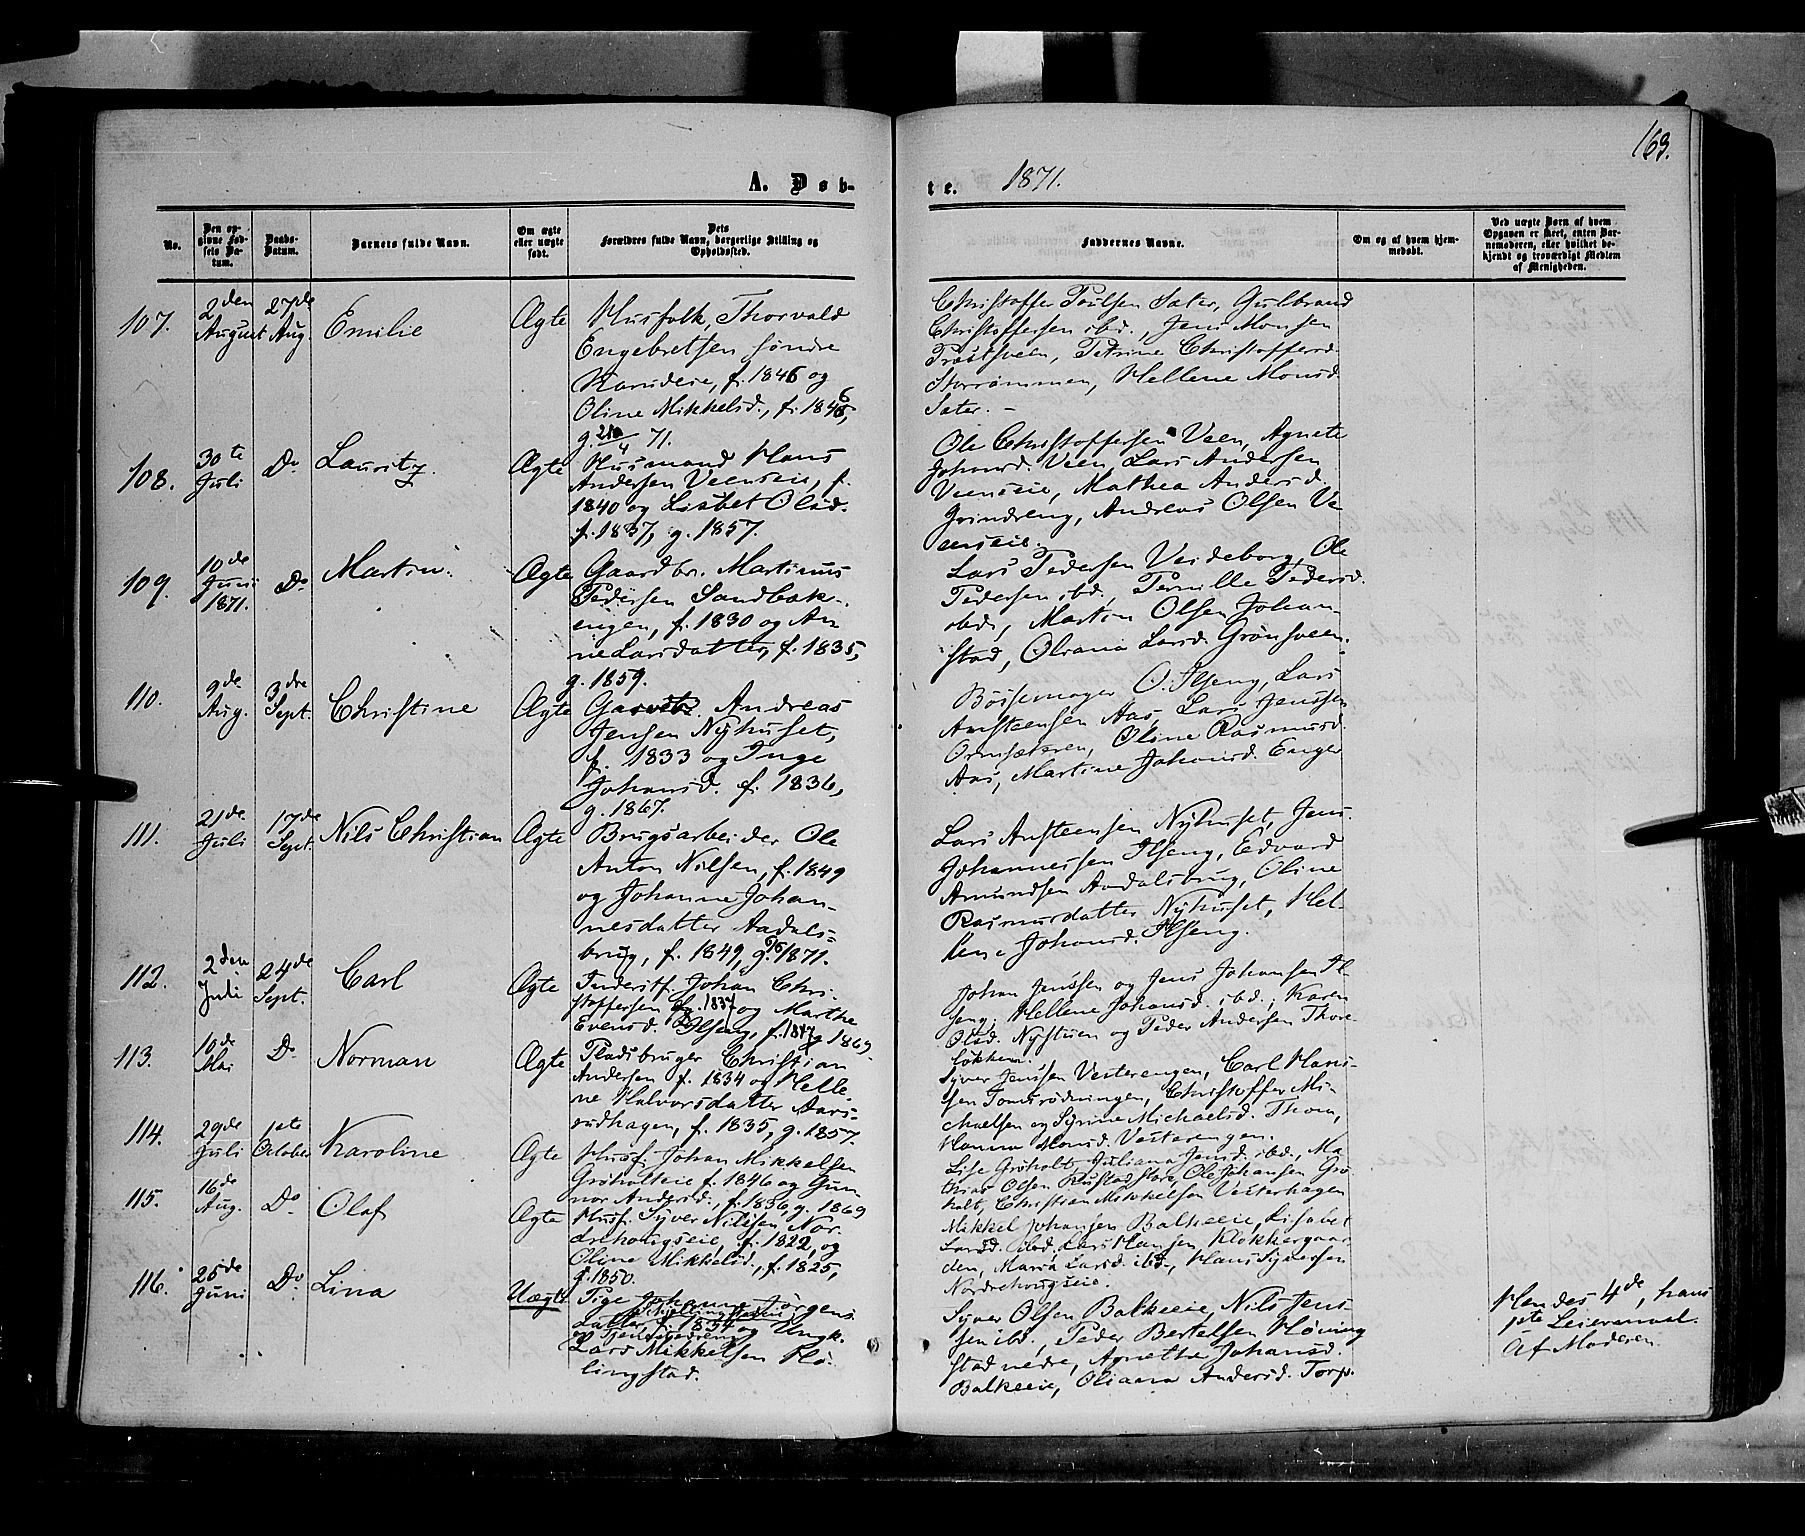 163.
A. Døb-
te. 1871.
No.
Den op-
givne Fød-
sels Da-
tum.
Daabs-
Datum.
Barnets fulde Navn.
Om ægte
eller uægte
født.
Dets
Forældres fulde Navn, borgerlige Stilling og
Opholdssted.
Faddernes Navne.
Om og af hvem hjem-
medøbt.
Ved uægte Børn af hvem
Opgaven er skeet, enten Bar-
nemoderen, eller hvilket be-
kjendt og troværdigt Medlem
af Menigheden.
107. 2den August 27de Aug. Emilie Ægte
Husfolk, Thorvald
Engebretsen søndre
f. 1846 og
Oline Mikkelsd., f. 1846,
g. 71.
Christoffer Poulsen Sæter, Gulbrand
Christoffersen ibd., Jens Monsen
Præstsveen, Petrine Christoffersd.
Storrømmen, Hellene Monsd.
Sæter. -
108. 30te Juli Do Lauritz Ægte
Husmand Hans
Andersen Veenseie, f.
1840 og Lisbet Olsd.
f. 1837, g. 1857.
Ole Christoffersen Veen, Agnete
Johansd. Veen, Lars Andersen
Veenseie, Mathea Andersd.
Grindreng, Andreas Olsen Ve
enseie.
109. 10de Juni 1871. Do Martin. Ægte
Gaardbr. Martinus
Pedersen Sandbæk-
engen, f. 1830 og An
ne Larsdatter, f. 1835,
g. 1859.
Lars Pedersen Veideborg, Ole
Pedersen ibd., Pernille Pedersd.
ibd., Martin Olsen Johan-
stad, Oliana Larsd. Grønsveen.
110. 9de Aug. 3dre Sept. Christine Ægte
Andreas
Jensen Nyhuset,
f. 1833 og Inge
Johansd. f. 1836,
g. 1867.
Børsemager O. Ilseng, Lars
Ansteensen Aas, Lars Jenssen
Ormsæteren, Oline Rasmusd.
Aas, Martine Johansd. Enger
111. 21de Juli 17de Sept. Nils Christian Ægte
Brugsarbeider Ole
Anton Nilsen, f. 1849
og Johanne Johan-
nesdatter Aadals-
brug, f. 1849, g. 1871.
Lars Ansteensen Nyhuset, Jens
Johannessen Ilseng, Edvard
Amundsen Aadalsbrug, Oline
Rasmusdatter Nyhuset, Hel-
lene Johansd. Ilseng.
112. 2den Juli 24de Sept. Carl Ægte
Inderstf. Johan Chri-
stoffersen f. 1837 og Marthe
Evensd. Ilseng, f. g. 1869.
Johan Jenssen og Jens Johansen Il-
seng, Hellene Johansd. ibd., Karen
Olsd. Nystuen og Peder Andersen Thore-
løkken.
113. 10de Mai Do Norman Ægte
Pladsbruger Christian
Andersen f. 1834 og Helle-
ne Halvorsdatter Aars-
rudhagen, f. 1835, g. 1857.
Syver Jenssen Vesterengen, Carl Hans-
sen Tomsrødningen, Christoffer Mi-
chaelsen og Syrine Michaelsd. Thom,
Hanna Monsd. Vesterengen.
114. 29de Juli 1ste October Karoline Ægte
Husf. Johan Mikkelsen
Grøholteie f. 1846 og Gun-
nor Andersd., f. 1836, g. 1869
Lise Grøholt, Juliana Jensd. ibd., Ma-
thias Olsen Rustadstore, Ole Johansen Grø
holt, Christian Mikkelsen Vesterhagen
115. 16de Aug. Do Olaf Ægte
Husf. Syver Nilssen Nor-
drehougseie, f. 1822, og
Oline Mikkelsd., f. 1825,
g. 1850.
Mikkel Johansen Balkeeie, Lisabet
Larsd. ibd., Lars Hansen Klokkergaar-
den, Maria Larsd. ibd., Hans Syversen
Nordrehougseie.
116. 25de Juni Do Lina Uægte
Pige Johanne Jørgens
datter, f. 1834 og Ungk.
Lars Mikkelsen Hø
lingstad.
Syver Olsen Balkeeie, Nils Jens-
sen ibd., Peder Bertelsen Høning
stad nedre, Agnethe Johansd.
Balkeeie, Oliana Andersd. Torp.
Hendes 4de, hans
1ste Leiermaal.
Af Moderen.